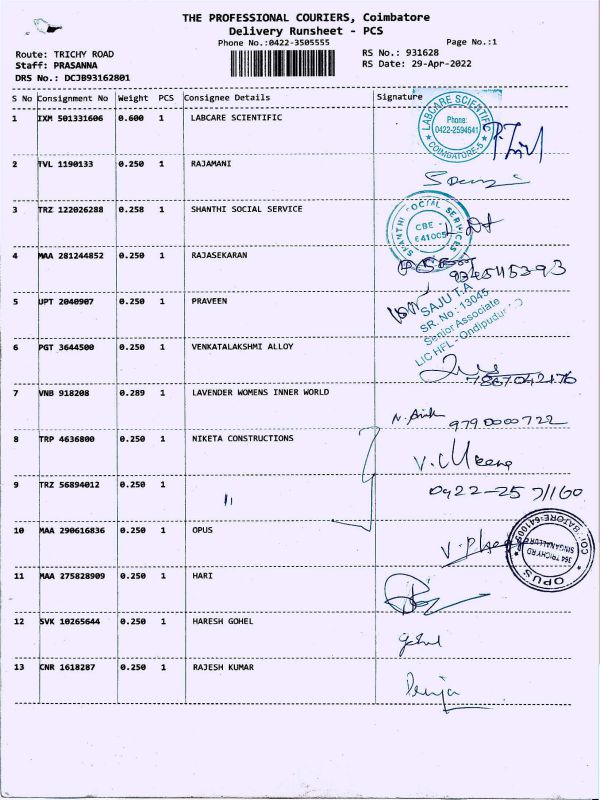 THE PROFESSIONAL COURIERS, Coimbatore
Delivery Runsheet - PCS
Phone No.:0422-3505555
Page No.:1
Route: TRICHY ROAD
RS No.: 931628
Staff: PRASANNA
RS Date: 29-Apr-2022
DRS No.: DCJB93162801
S No Consignment No Weight PCS Consignee Details Signature
1 IXM 501331606 0.600 1 LABCARE SCIENTIFIC
LABCARE SCIENTIFIC
Phone:
0422-2594641
COIMBATORE-5
2 TVL 1190133 0.250 1 RAJAMANI
3 TRZ 122026288 0.258 1 SHANTHI SOCIAL SERVICE
SHANTHI SOCIAL SERVICES
CBE -
641005
4 MAA 281244852 0.250 1 RAJASEKARAN
5 UPT 2040907 0.250 1 PRAVEEN
SAJU T.A
SR. No : 13045
Senior Associate
LIC HFL - Ondipudur
6 PGT 3644500 0.250 1 VENKATALAKSHMI ALLOY
7867042176
7 VNB 918208 0.289 1 LAVENDER WOMENS INNER WORLD
9790000722
8 TRP 4636800 0.250 1 NIKETA CONSTRUCTIONS
V. Meena
9 TRZ 56894012 0.250 1
"
10 MAA 290616836 0.250 1 OPUS
OPUS
364 TRICHY RD
SINGANALLEUR
COIMBATORE-641005
11 MAA 275828909 0.250 1 HARI
12 SVK 10265644 0.250 1 HARESH GOHEL
13 CNR 1618287 0.250 1 RAJESH KUMAR